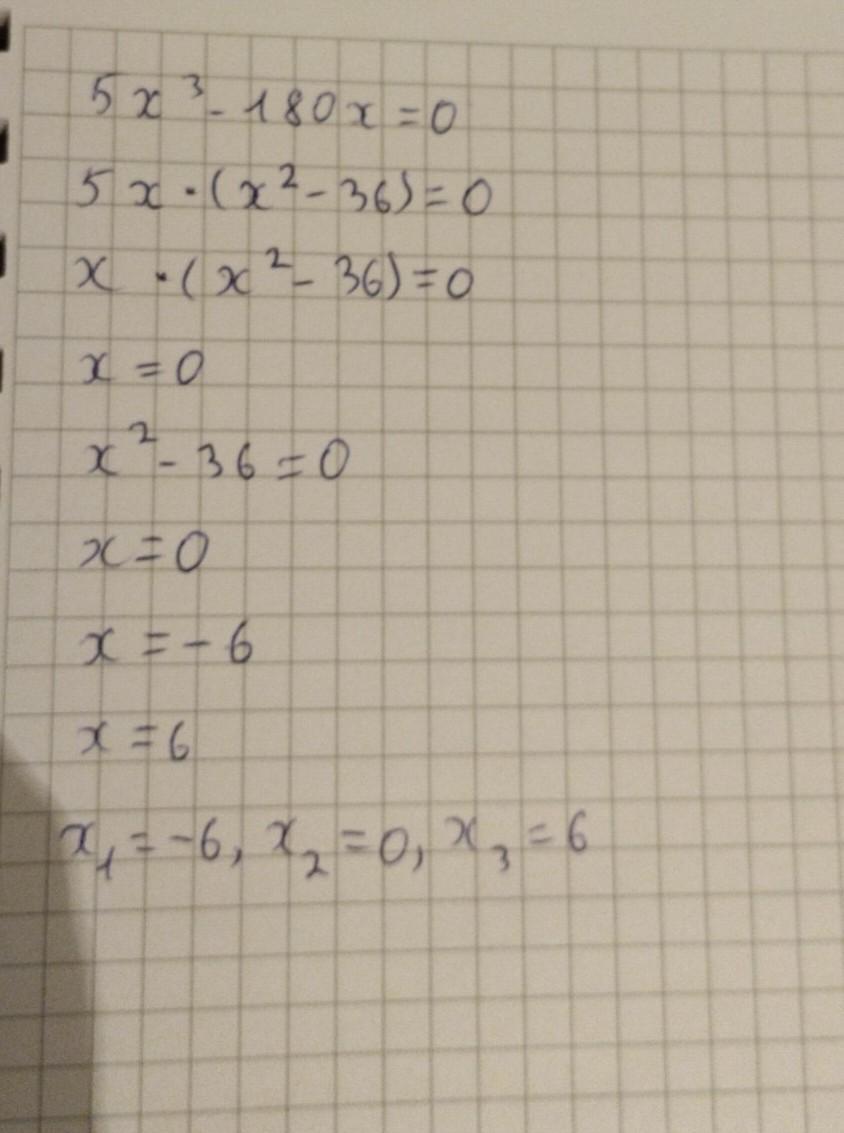 5x³-180x=0
5x·(x²-36)=0
x·(x²-36)=0
x=0
x²-36=0
x=0
x=-6
x=6
x₁=-6, x₂=0, x₃=6